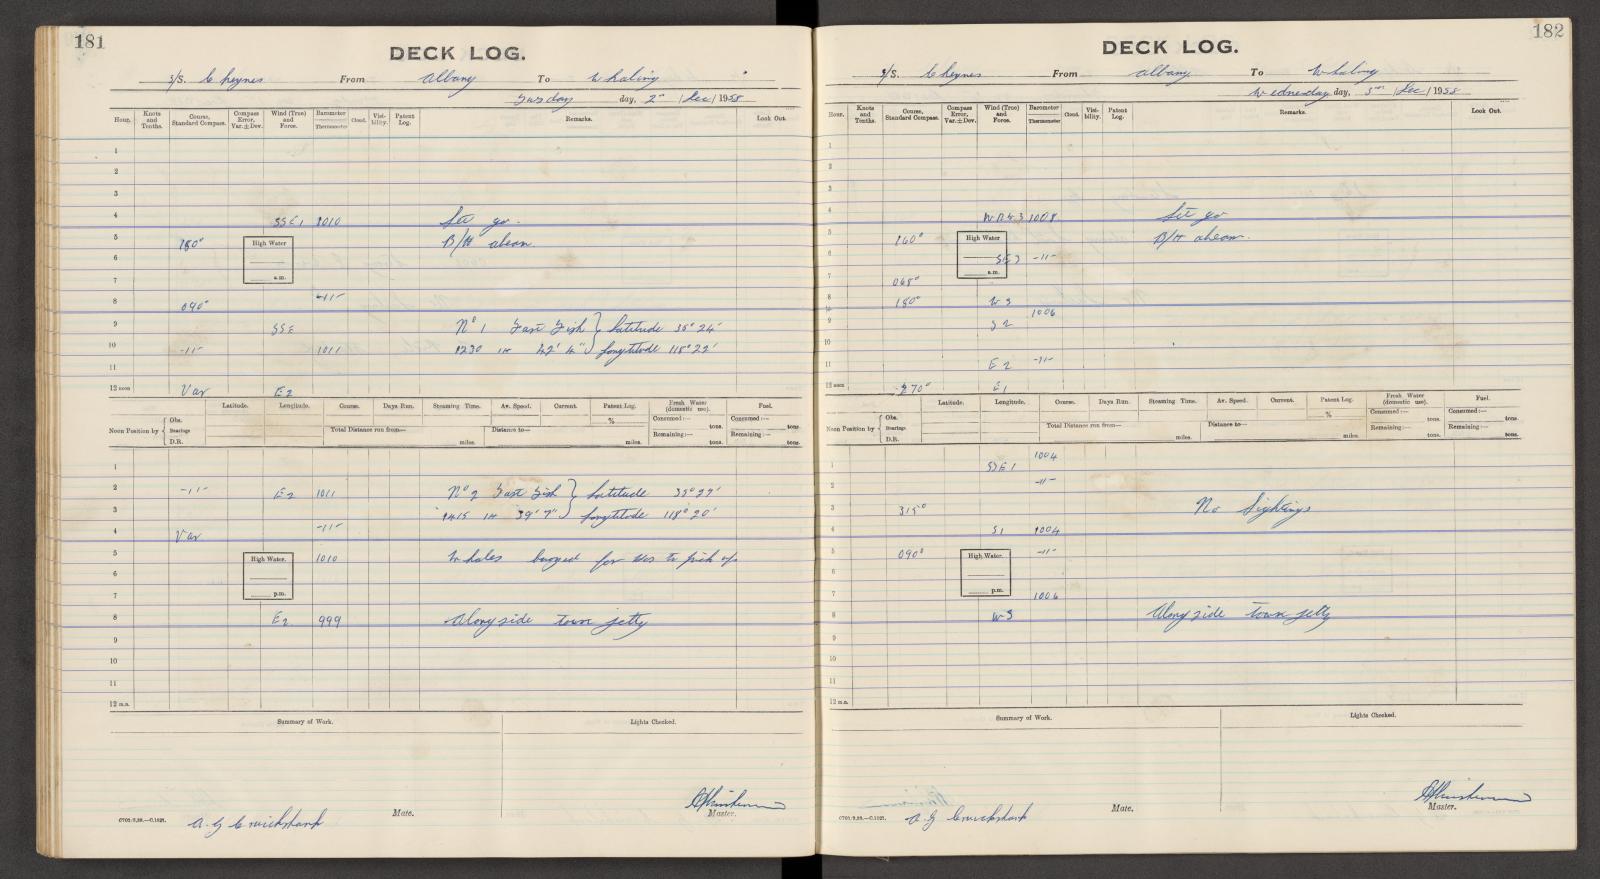 181
DECK LOG.
S/S. Cheynes From Albany To Whaling
Tuesday day, 2nd / Dec / 1958
Hour. Knots and Tenths. Course, Standard Compass. Compass Error, Var.±Dev. Wind (True) and Force. Barometer Thermometer Cloud. Visibility. Patent Log. Remarks. Look Out.
1
2
3
4 SSE1 1010 Let go.
5 180° High Water B/H abeam.
6
7 a.m.
8 090° -11-
9 SSE No 1 Fast Fish } Latitude 35° 24'
10 -11- 1011 1230 HR 42' 4" } Longtitude 118° 22'
11
12 noon Var E2
Latitude. Longitude. Course. Days Run. Steaming Time. Av. Speed. Current. Patent Log. Fresh Water (domestic use). Fuel.
Noon Position by { Obs. Bearings D.R. Total Distance run from— miles. Distance to— miles. % Consumed:— tons. Remaining:— tons. Consumed:— tons. Remaining:— tons.
1
2 -11- E2 1011 No 2 Fast Fish } Latitude 35° 27'
3 1415 HR 39' 7" } Longtitude 118° 20'
4 Var -11-
5 High Water. 1010 Whales buoyed for us to pick up
6
7 p.m.
8 E2 999 Alongside town jetty
9
10
11
12 m.n.
Summary of Work. Lights Checked.
A. G Cruickshank Mate. Master.
182
DECK LOG.
S/S. Cheynes From Albany To Whaling
Wednesday day, 3rd / Dec / 1958
Hour. Knots and Tenths. Course, Standard Compass. Compass Error, Var.±Dev. Wind (True) and Force. Barometer Thermometer Cloud. Visibility. Patent Log. Remarks. Look Out.
1
2
3
4 WNW3 1008 Let go
5 160° High Water B/H abeam.
6 SE3 -11-
7 068° a.m.
8 180° W3
9 S2 1006
10
11 E2 -11-
12 noon 270° E1
Latitude. Longitude. Course. Days Run. Steaming Time. Av. Speed. Current. Patent Log. Fresh Water (domestic use). Fuel.
Noon Position by { Obs. Bearings D.R. Total Distance run from— miles. Distance to— miles. % Consumed:— tons. Remaining:— tons. Consumed:— tons. Remaining:— tons.
1 SSE1 1004
2 -11-
3 315° No Sightings
4 S1 1004
5 090° High Water. -11-
6
7 p.m. 1006
8 W3 Alongside town jetty
9
10
11
12 m.n.
Summary of Work. Lights Checked.
A. G Cruickshank Mate. Master.